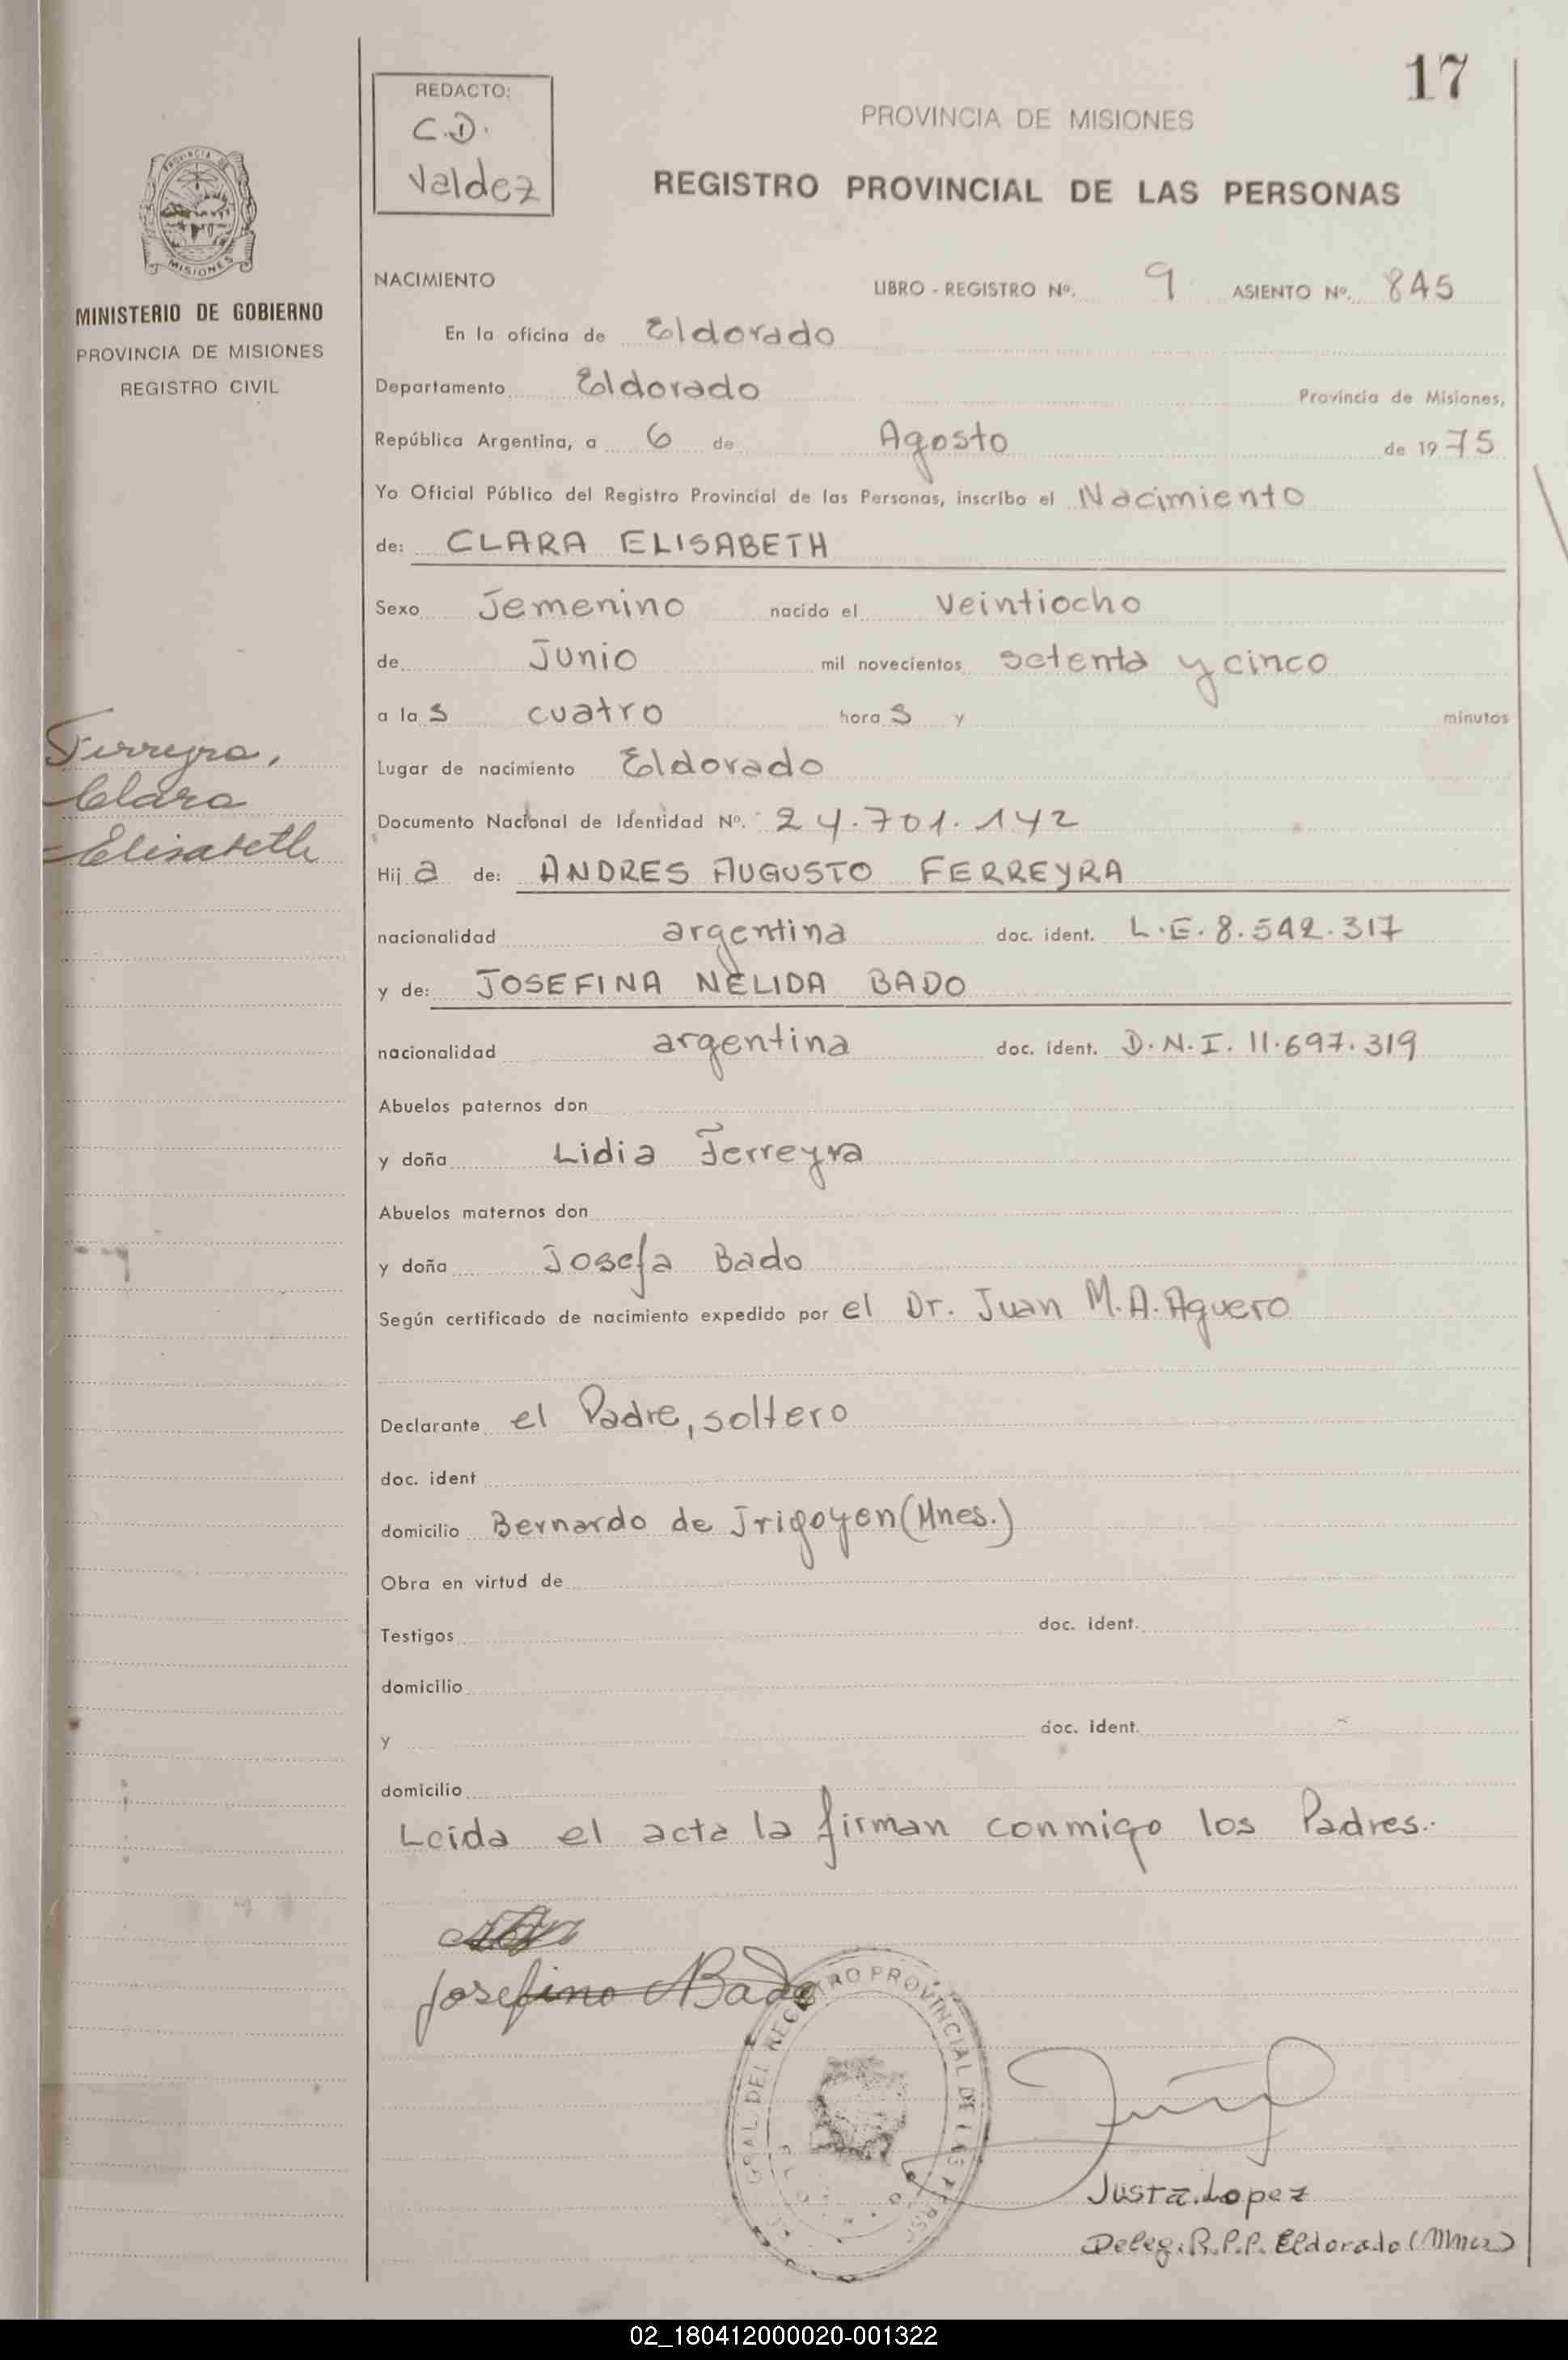 17
REDACTO:
C.D.
Valdez
PROVINCIA DE MISIONES
REGISTRO PROVINCIAL DE LAS PERSONAS
PROVINCIA DE
MISIONES
MINISTERIO DE GOBIERNO
PROVINCIA DE MISIONES
REGISTRO CIVIL
NACIMIENTO
LIBRO - REGISTRO Nº. 9 ASIENTO Nº. 845
En la oficina de Eldorado
Departamento Eldorado Provincia de Misiones,
República Argentina, a 6 de Agosto de 1975
Yo Oficial Público del Registro Provincial de las Personas, inscribo el Nacimiento
de: CLARA ELISABETH
Sexo Femenino nacido el Veintiocho
de Junio mil novecientos setenta y cinco
a las cuatro horas y minutos
Ferreyra,
Clara
Elisabeth
Lugar de nacimiento Eldorado
Documento Nacional de Identidad Nº. 24.701.142
Hija de: ANDRES AUGUSTO FERREYRA
nacionalidad argentina doc. ident. L.E. 8.542.317
y de: JOSEFINA NELIDA BADO
nacionalidad argentina doc. ident. D.N.I. 11.697.319
Abuelos paternos don
y doña Lidia Ferreyra
Abuelos maternos don
y doña Josefa Bado
Según certificado de nacimiento expedido por el Dr. Juan M.A. Aguero
Declarante el Padre, soltero
doc. ident
domicilio Bernardo de Irigoyen (Mnes.)
Obra en virtud de
Testigos doc. ident.
domicilio
y doc. ident.
domicilio
Leida el acta la firman conmigo los Padres.
Josefina N Bado
GRAL DEL REGISTRO PROVINCIAL DE LAS PERS
Justa.Lopez
Deleg. R.P.P. Eldorado (Mnes)
02_180412000020-001322